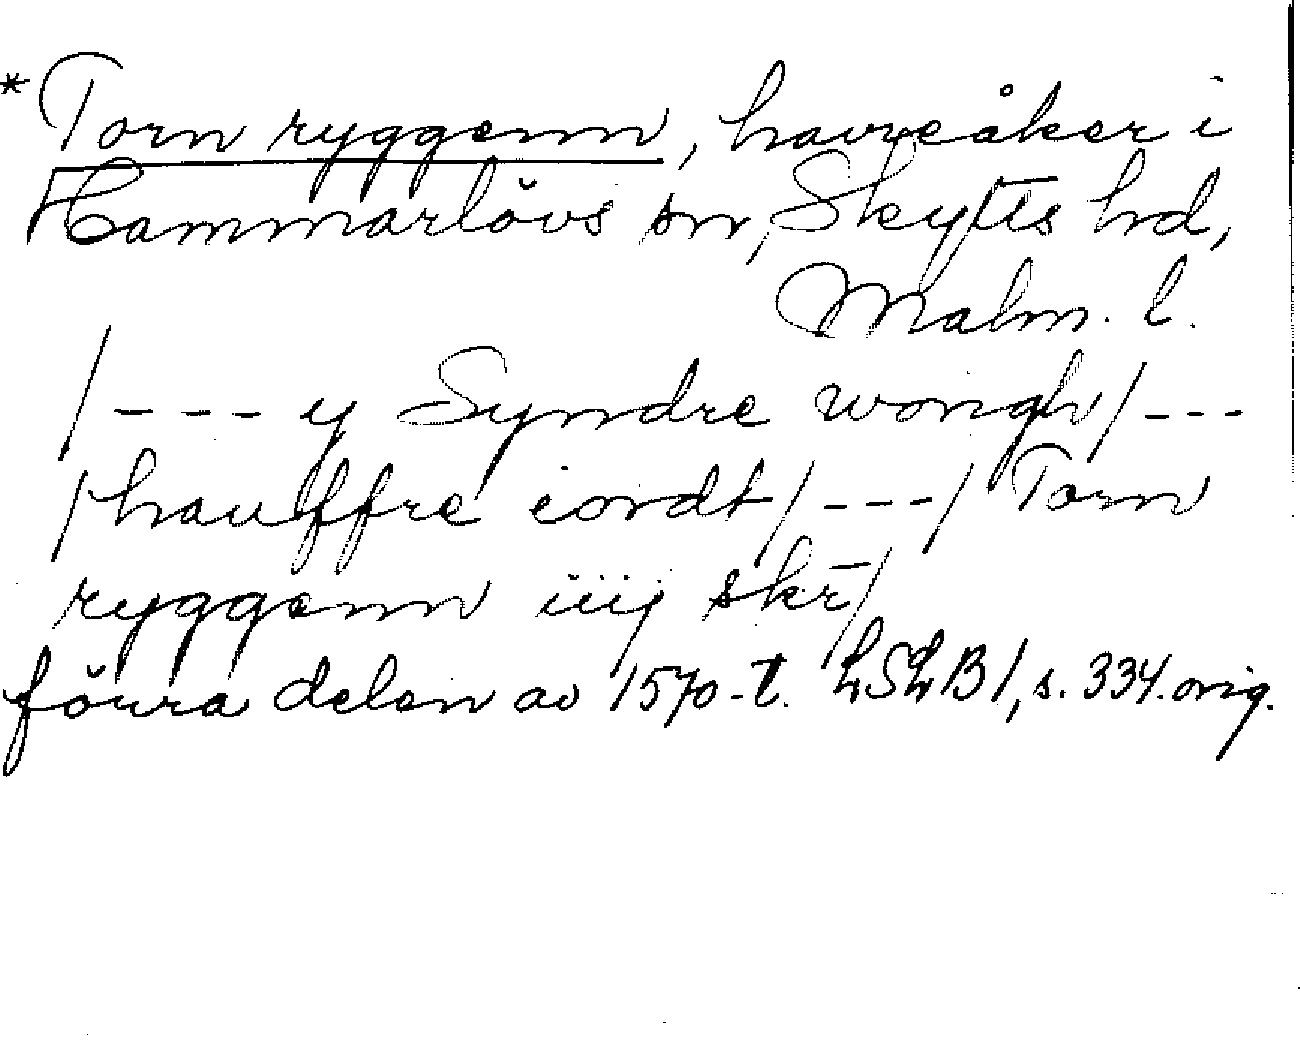 *Torn ryggenn, havreåker i
Hammarlövs sn, Skytts hd,
Malm. l.
/--- y Syndre wongh/---
/hauffre iordt/---/ Torn
ryggenn iiij skr̄/
förra delen av 1570-t. LSLB 1, s. 334. orig.